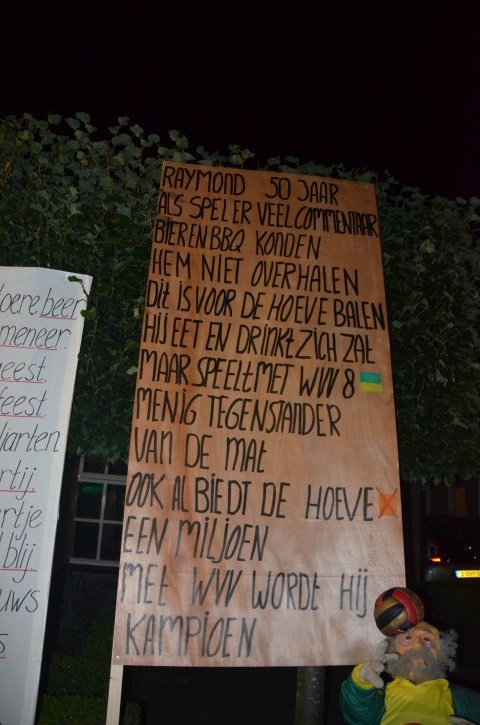 RAYMOND 50 JAAR
ALS SPELER VEEL COMMENTAAR
BIER EN BBQ KONDEN
HEM NIET OVERHALEN
Dit IS VOOR DE HOEVE BALEN
HIJ EET EN DRINKT ZICH ZAT
MAAR SPEELT MET WVV 8
MENIG TEGENSTANDER
VAN DE MAT
OOK AL BIEDT DE HOEVE
EEN MILJOEN
MET WVV WORDT HIJ
KAMPIOEN
oere beer
meneer.
eest.
feest
iarten
rtij.
rtje
blij
uws
s